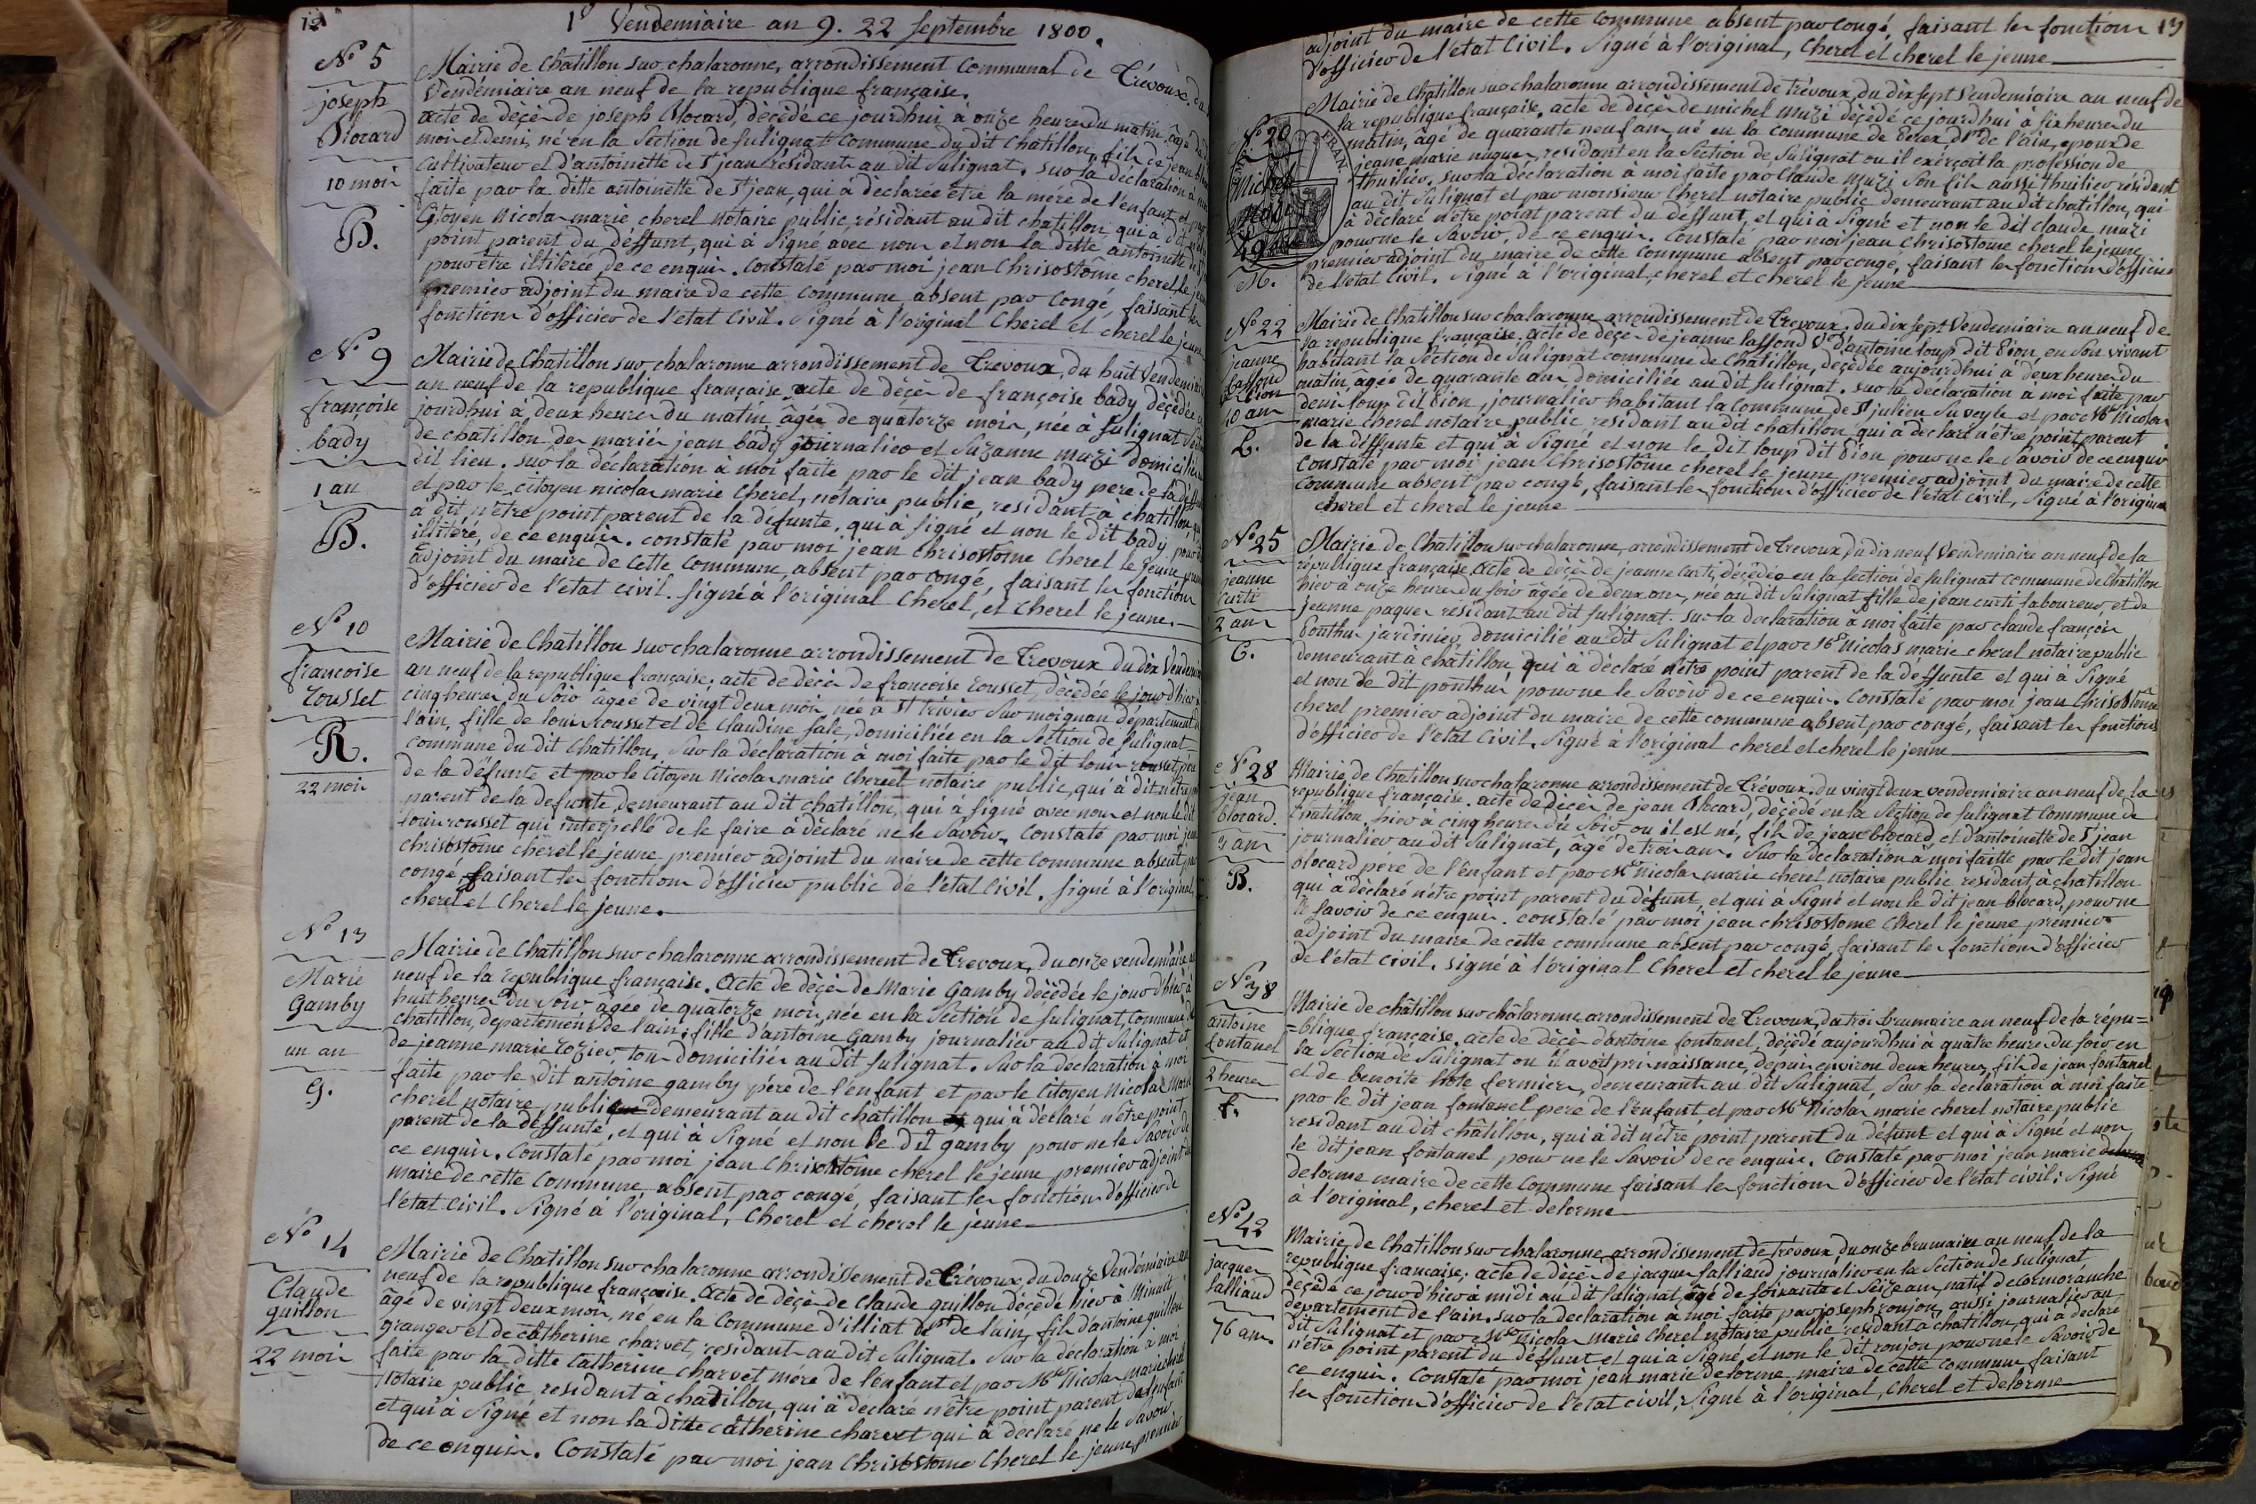 12
1er Vendemiaire an 9. 22 septembre 1800.
N° 5
joseph
Blocard
10 mois
B.
Mairie de Chatillon sur chalaronne, arrondissement Communal de Trévoux, du
Vendémiaire an neuf de la republique française.
acte de décès de joseph Blocard, décédé ce jourdhui à onze heures du matin, agé de dix
mois et demi, né en la Section de Sulignat Commune du dit Chatillon, fils de jean
Cultivateur et d'antoinette de St jean résidant au dit Sulignat. sur la déclaration à moi
faite par la ditte antoinette de St jean, qui à déclarée être la mére de l'enfant et par le
Citoyen Nicolas marie cherel Notaire public, résidant au dit chatillon, qui à dit n'être
point parent du déffunt, qui à Signé avec nous et non la ditte antoinette de St
pour être illiterée, de ce enquis. Constaté par moi jean Chrisostôme cherel le jeune
premier adjoint du maire de cette Commune absent par Congé, faisant les
fonctions d'officier de l'état Civil. Signé à l'original Cherel et cherel le jeune
N° 9
françoise
bady
1 an
B.
Mairie de Chatillon sur chalaronne arrondissement de Trevoux, du huit Vendemiaire
an neuf de la republique française, acte de décès de françoise bady décédée ce
jourdhui à deux heures du matin âgée de quatorze mois, née à Sulignat Section
de chatillon, des mariés jean bady journalier et Suzanne muzi domiciliés
dit lieu. sur la déclaration à moi faite par le dit jean bady pere de la déffunte
et par le citoyen nicolas marie Cherel, notaire public, résidant à chatillon, qui
à dit n'être point parent de la défunte, qui à Signé et non le dit bady, pour être
illitéré, de ce enquis. constaté par moi jean chrisostôme Cherel le jeune, premier
adjoint du maire de Cette Commune, absent par congé, faisant les fonctions
d'officier de l'etat civil. signé à l'original Cherel, et Cherel le jeune.
N° 10
francoise
rousset
R.
22 mois
Mairie de Chatillon sur chalaronne arrondissement de Trevoux du dix Vendemiaire
an neuf de la republique française. acte de décès de francoise rousset, décédée le jour d'hier à
cinq heures du Soir âgée de vingt deux mois, née à St trivier sur moignan département de
l'ain, fille de louis rousset et de Claudine falé, domiciliée en la Section de Sulignat
commune du dit Chatillon. Sur la déclaration à moi faite par le dit louis rousset, père
de la défunte et par le Citoyen Nicolas marie cherel notaire public, qui à dit n'être
parent de la defunte, demeurant au dit chatillon, qui à signé avec nous et non le dit
louis rousset qui interpellé de le faire à déclaré ne le Savoir. Constaté par moi jean
chrisostôme cherel le jeune premier adjoint du maire de cette Commune absent par
congé, faisant les fonctions d'officier public de l'état Civil. signé à l'original,
cherel et Cherel le jeune.
N° 13
Marie
Gamby
un an
G.
Mairie de Chatillon sur chalaronne arrondissement de Trevoux, du onze vendemiaire an
neuf de la republique française. Acte de décès de Marie Gamby décédée le jour d'hier à
huit heures du soir âgée de quatorze mois, née en la Section de Sulignat, commune de
chatillon, departement de l'ain, fille d'antoine Gamby journalier au dit Sulignat et
de jeanne marie rozier, tous domiciliés au dit Sulignat. Sur la déclaration à moi
faite par le dit antoine gamby père de l'enfant et par le Citoyen Nicolas Marie
cherel notaire public demeurant au dit chatillon qui à déclaré n'être point
parent de la déffunte, et qui à Signé et non le dit gamby pour ne le Savoir de
ce enquis. Constaté par moi jean Chrisostôme cherel le jeune premier adjoint du
maire de cette Commune absent par congé, faisant les fonctions d'officier de
l'état Civil. Signé à l'original, Cherel et cherel le jeune
N° 14
Claude
guillon
22 mois
Mairie de Chatillon sur chalaronne arrondissement de Trévoux, du douze Vendémiaire an
neuf de la republique françoise. Acte de décès de Claude guillon décédé hier à Minuit
âgé de vingt deux mois, né en la Commune d'illiat dpt de l'ain, fils d'antoine guillon
granger et de catherine charvet, residant au dit Sulignat. Sur la déclaration à moi
faite par la ditte Catherine charvet mére de l'enfant et par Mtre Nicolas marie cherel
Notaire public, residant à chatillon, qui à déclaré n'être point parent de l'enfant
et qui à Signé et non la ditte cathérine charvet qui à déclaré ne le Savoir
de ce enquis. Constaté par moi jean Chrisostome Cherel le jeune, premier
13
adjoint du maire de cette Commune absent par congé, faisant les fonctions
d'officier de l'etat Civil. Signé à l'original, Cherel et cherel le jeune
N° 20
Michel
49 ans
M.
FRAN.
Mairie de Chatillon sur chalaronne arrondissement de Trévoux, du dix sept Vendemiaire an neuf de
la republique française. acte de décès de michel muzi décédé ce jourdhui à six heures du
matin, âgé de quarante neuf ans, né en la commune de Dt de l'ain, epoux de
jeanne marie nuguer, residant en la Section de Sulignat ou il exerçoit la profession de
thuilier. Sur la déclaration à moi faite par Claude muzi son fils aussi thuilier résidant
au dit Sulignat et par monsieur Cherel notaire public demeurant au dit chatillon, qui
à déclaré n'etre point parent du déffunt, et qui à Signé et non le dit claude muzi
pour ne le Savoir, de ce enquis. Constaté par moi jean Chrisostome cherel le jeune
premier adjoint du maire de cette Commune absent par congé, faisant les fonctions d'officier
de l'etat Civil. Signé à l'original, cherel et cherel le jeune
N° 22
jeanne
laffond
ve Léon
40 ans
L.
Mairie de Chatillon sur chalaronne arrondissement de Trevoux, du dix sept Vendemiaire an neuf de
la republique française. acte de décès de jeanne laffond Ve d'antoine loup dit Léon, en son vivant
habitant la Section de Sulignat commune de Chatillon, décédée aujourdhui à deux heures du
matin, âgée de quarante ans domiciliée au dit Sulignat. Sur la déclaration à moi faite par
denis loup dit Léon, journalier habitant la Commune de St julien Su veyle et par Mre Nicolas
marie cherel notaire public residant au dit chatillon qui à déclaré n'être point parent
de la déffunte et qui à Signé et non le dit loup dit Léon pour ne le Savoir de ce enquis
Constaté par moi jean Chrisostôme cherel le jeune premier adjoint du maire de cette
Commune absent par congé, faisant les fonctions d'officier de l'état civil, Signé à l'original
cherel et cherel le jeune
N° 25
jeanne
curti
2 ans
C.
Mairie de Chatillon sur chalaronne, arrondissement de Trevoux, du dix neuf Vendemiaire an neuf de la
republique française, acte de décès de jeanne Curti, décédée en la section de Sulignat commune de Chatillon
hier à onze heures du soir âgée de deux ans, née au dit Sulignat fille de jean curti laboureur, et de
jeanne paquer residant au dit Sulignat. Sur la déclaration à moi faite par claude françois
Ponthu jardinier, domicilié au dit Sulignat et par Mr Nicolas marie cherel notaire public
demeurant à châtillon qui à déclaré n'etre point parent de la déffunte et qui à Signé
et non le dit ponthu pour ne le Savoir de ce enquis. Constaté par moi jean Chrisostôme
cherel premier adjoint du maire de cette commune absent par congé, faisant les fonctions
d'officier de l'état Civil. Signé à l'original cherel et cherel le jeune
N° 28
jean
blocard.
3 ans
B.
Mairie de Chatillon sur chalaronne arrondissement de Trévoux, du vingt deux vendemiaire an neuf de la
republique française. acte de décès de jean Blocard, décédé en la Section de Sulignat Commune de
Chatillon, hier à cinq heures du Soir, ou il est né, fils de jean blocard et d'antoinette de St jean
journalier au dit Sulignat, âgé de trois ans. Sur la déclaration à moi faitte par le dit jean
blocard pere de l'enfant et par Mr Nicolas marie cherel notaire public residant à chatillon
qui à déclaré n'être point parent du défunt, et qui à Signé et non le dit jean blocard, pour ne
le savoir de ce enquis. constaté par moi jean chrisostome Cherel le jeune premier
adjoint du maire de cette commune absent par congé, faisant les fonctions d'officier
de l'état Civil. signé à l'original Cherel et cherel le jeune
N° 38
antoine
fontanel
2 heures
f.
Mairie de châtillon sur châlaronne arrondissement de Trevoux, du trois brumaire an neuf de la répu=
=blique française. acte de décès d'antoine fontanel, décédé aujourdhui à quatre heures du soir en
la Section de Sulignat ou il avoit pris naissance, depuis environ deux heures, fils de jean fontanel
et de benoite hôte fermiers, demeurant au dit Sulignat, Sur la déclaration à moi faite
par le dit jean fontanel pere de l'enfant et par Mr Nicolas marie cherel notaire public
residant au dit châtillon, qui à dit n'être point parent du défunt et qui à Signé et non
le dit jean fontanel pour ne le Savoir de ce enquis. Constaté par moi jean marie
delorme maire de cette Commune faisant les fonctions d'officier de l'état civil; Signé
à l'original, cherel et delorme
N° 42
jacques
salliand
76 ans
Mairie de Chatillon sur chalaronne arrondissement de Trévoux du onze brumaire an neuf de la
republique française; acte de décès de jacques salliand journalier en la Section de Sulignat,
décédé ce jour d'hier à midi au dit Sulignat, âgé de soixante et Seize ans, natif de cormoranche
departement de l'ain. Sur la déclaration à moi faite par joseph ronjon, aussi journalier au
dit Sulignat et par Mtre Nicolas marie cherel notaire public residant à châtillon, qui à déclaré
n'être point parent du déffunt et qui à Signé et non le dit ronjon pour ne le Savoir de
ce enquis. Constaté par moi jean marie delorme maire de cette commune faisant
les fonctions d'officier de l'etat civil; Signé à l'original, Cherel et delorme